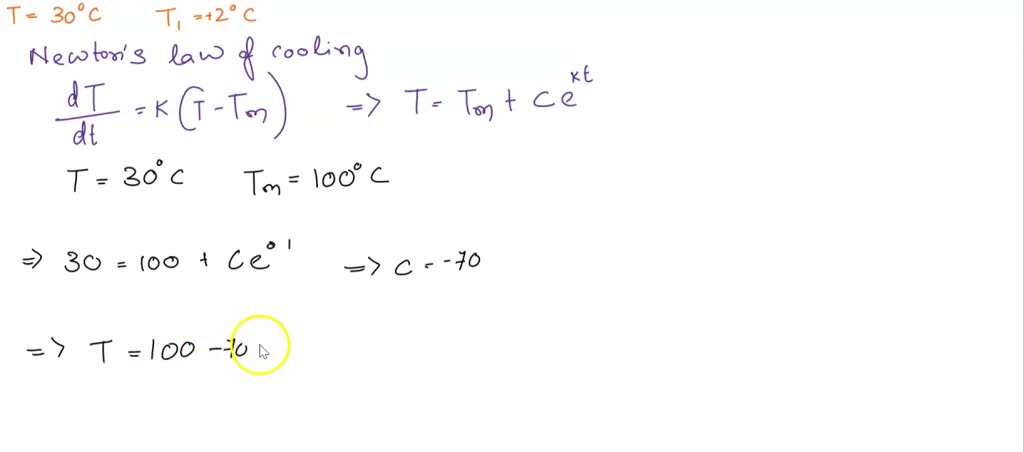 T = 30°C T₁ = +2°C
Newton's law of cooling
dT/dt = K(T - Tm) => T = Tm + Ce^kt
T = 30°C Tm = 100°C
=> 30 = 100 + Ce^0 1 => C = -70
=> T = 100 - 70